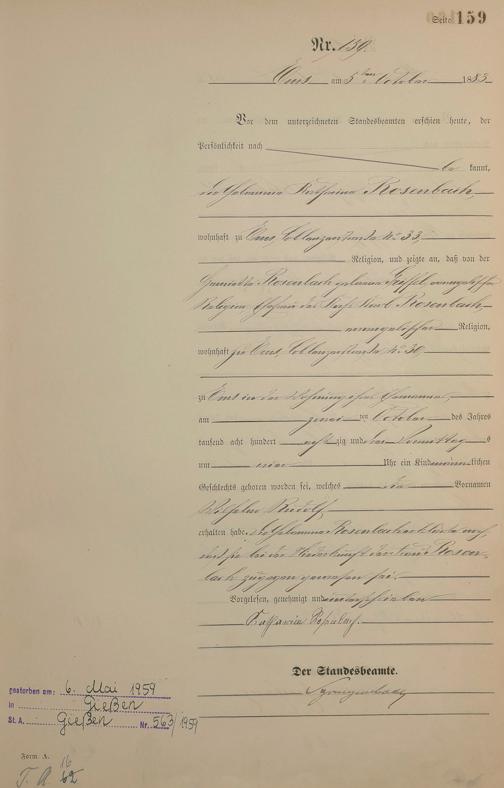 Seite 159
Nr. 159.
Ems am 5ten October 1885
Vor dem unterzeichneten Standesbeamten erschien heute, der
Persönlichkeit nach
be kannt,
die Hebamme Katharina Rosenbach,
wohnhaft zu Ems, Coblenzerstraße № 33,
Religion, und zeigte an, daß von der
Henriette Rosenbach geborene evangelischer
Religion, Ehefrau des Karl Rosenbach,
evangelischer Religion,
wohnhaft zu Ems, Coblenzerstraße № 30
zu Ems in der Wohnung ihres Ehemannes,
am zwei ten October des Jahres
tausend acht hundert achtzig und Vormittags
um Uhr ein Kind männlichen
Geschlechts geboren worden sei, welches die Vornamen
Wilhelm Rudolf
erhalten habe. Die Hebamme Rosenbach erklärte noch,
daß sie bei der Niederkunft der Frau Rosen-
bach zugegen gewesen sei.
Vorgelesen, genehmigt und unterschrieben
Katharina Rosenbach.
Der Standesbeamte.
gestorben am: 6. Mai 1959
in Gießen
St. A. Gießen Nr. 563/1959
Form. A.
16
T. A. 62